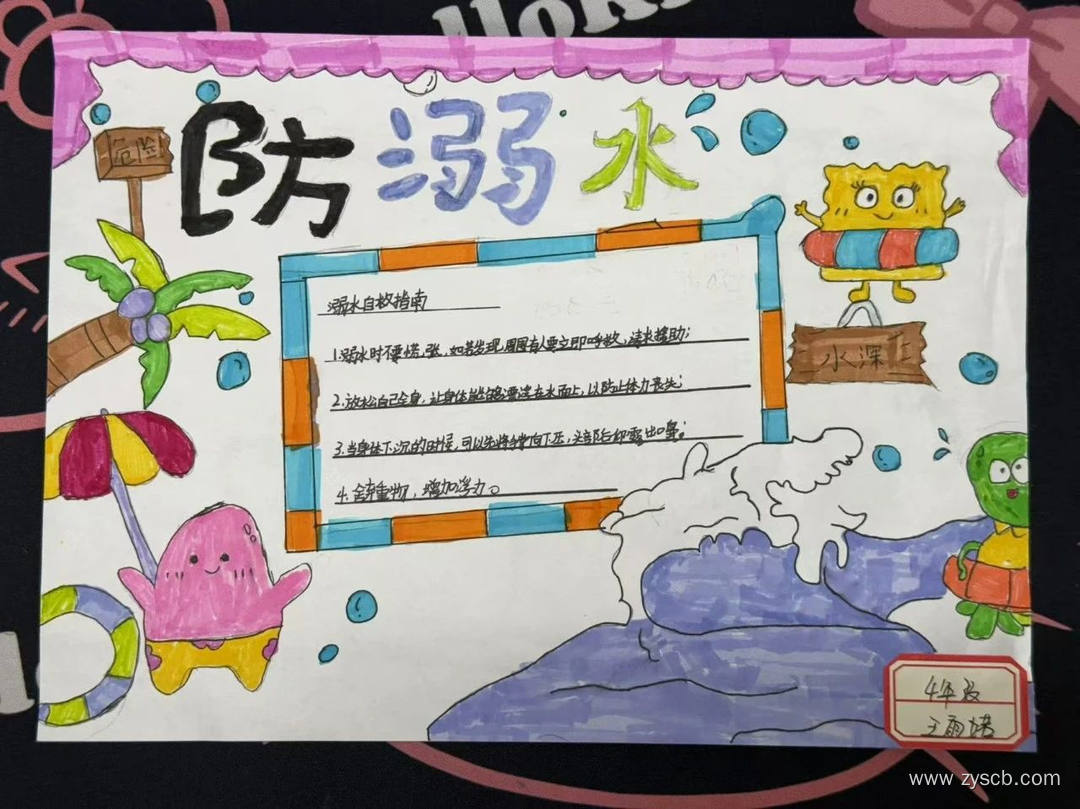 危险
防溺水
溺水自救指南
1.溺水时不要慌张，如若发现周围有人要立即呼救，请求援助；
2.放松自己全身，让身体能够漂浮在水面上，以防止体力丧失；
3.当身体下沉的时候，可以先将手掌向下压，头部后仰露出口鼻；
4.舍弃重物，增加浮力。
水深
4年级
王雨
www.zyscb.com